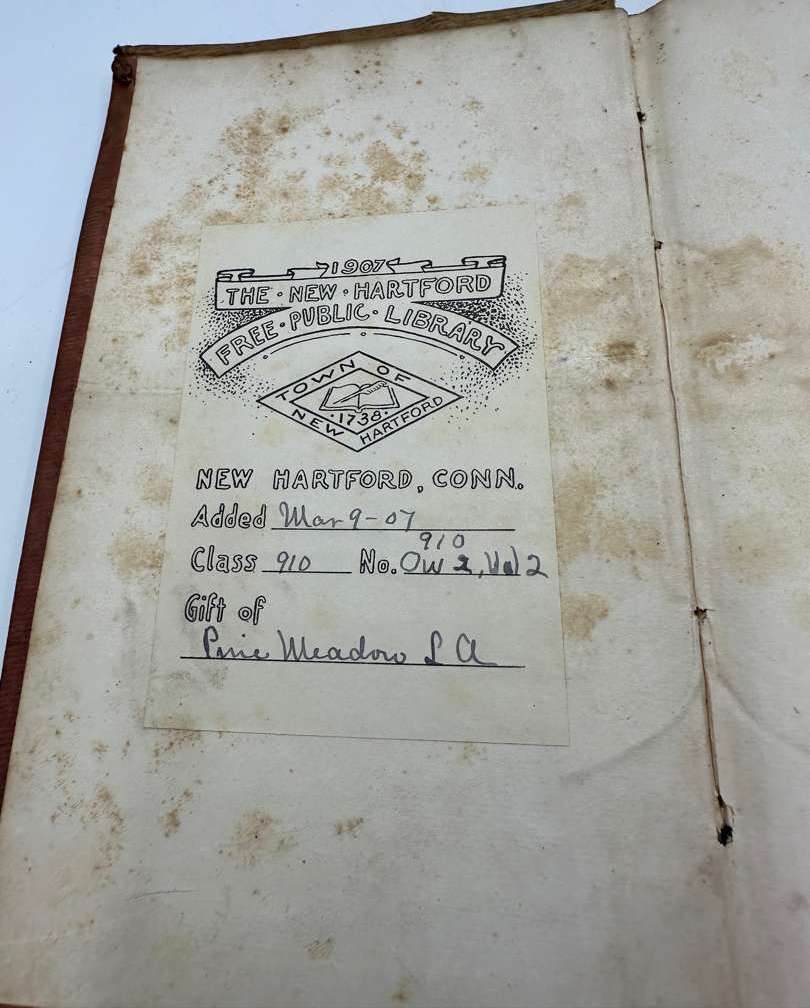 1907
THE · NEW · HARTFORD
FREE · PUBLIC · LIBRARY
TOWN OF
· 1738 ·
NEW HARTFORD
NEW HARTFORD, CONN.
Added Mar 9-07
910
Class 910 No. Ow 2, Vol 2
Gift of
Pine Meadow L A